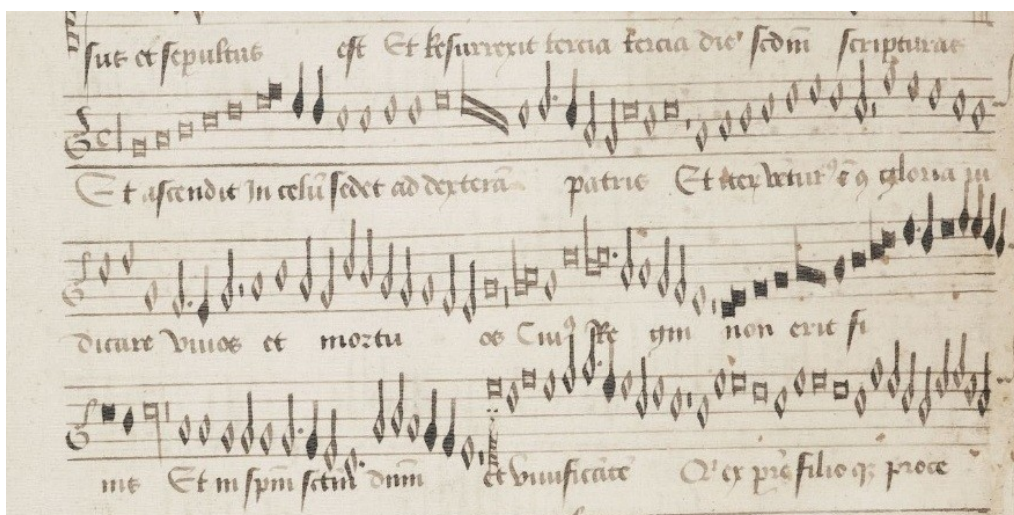 sus et sepultus est Et Resurrexit tercia tercia die scdm scripturas
Et ascendit In celū sedet ad dexterā patris Et gloria iu
dicare vivos et mortu os Cuiꝰ Re gni non erit fi
nis Et in spm sctm dnm et vivificāte ex pre filioqꝫ proce